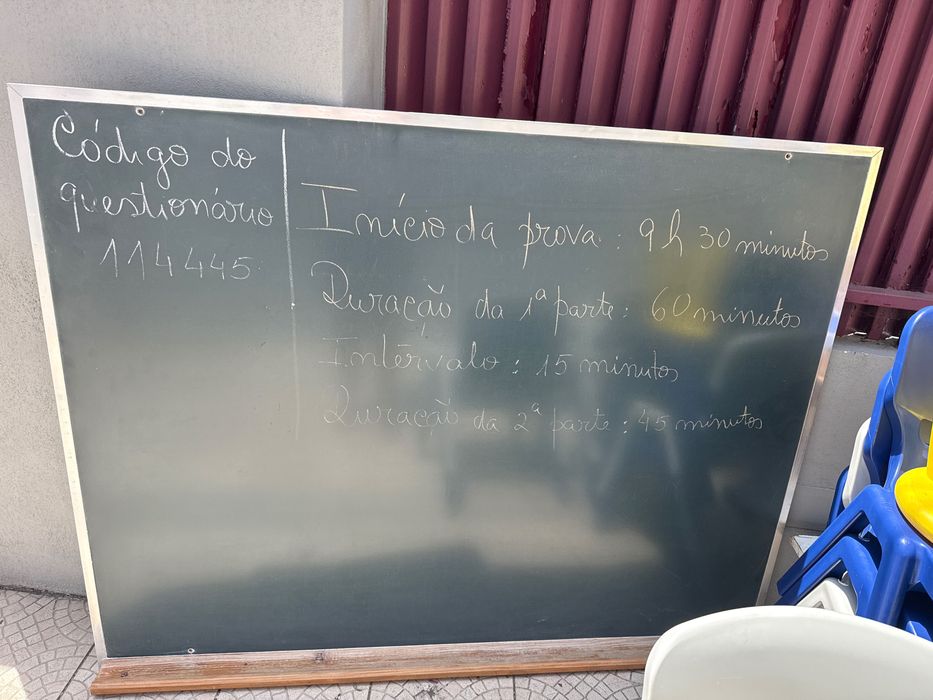 Código do
questionário
114445
Início da prova: 9h 30 minutos
Duração da 1ª parte: 60 minutos
Intervalo: 15 minutos
Duração da 2ª parte: 45 minutos